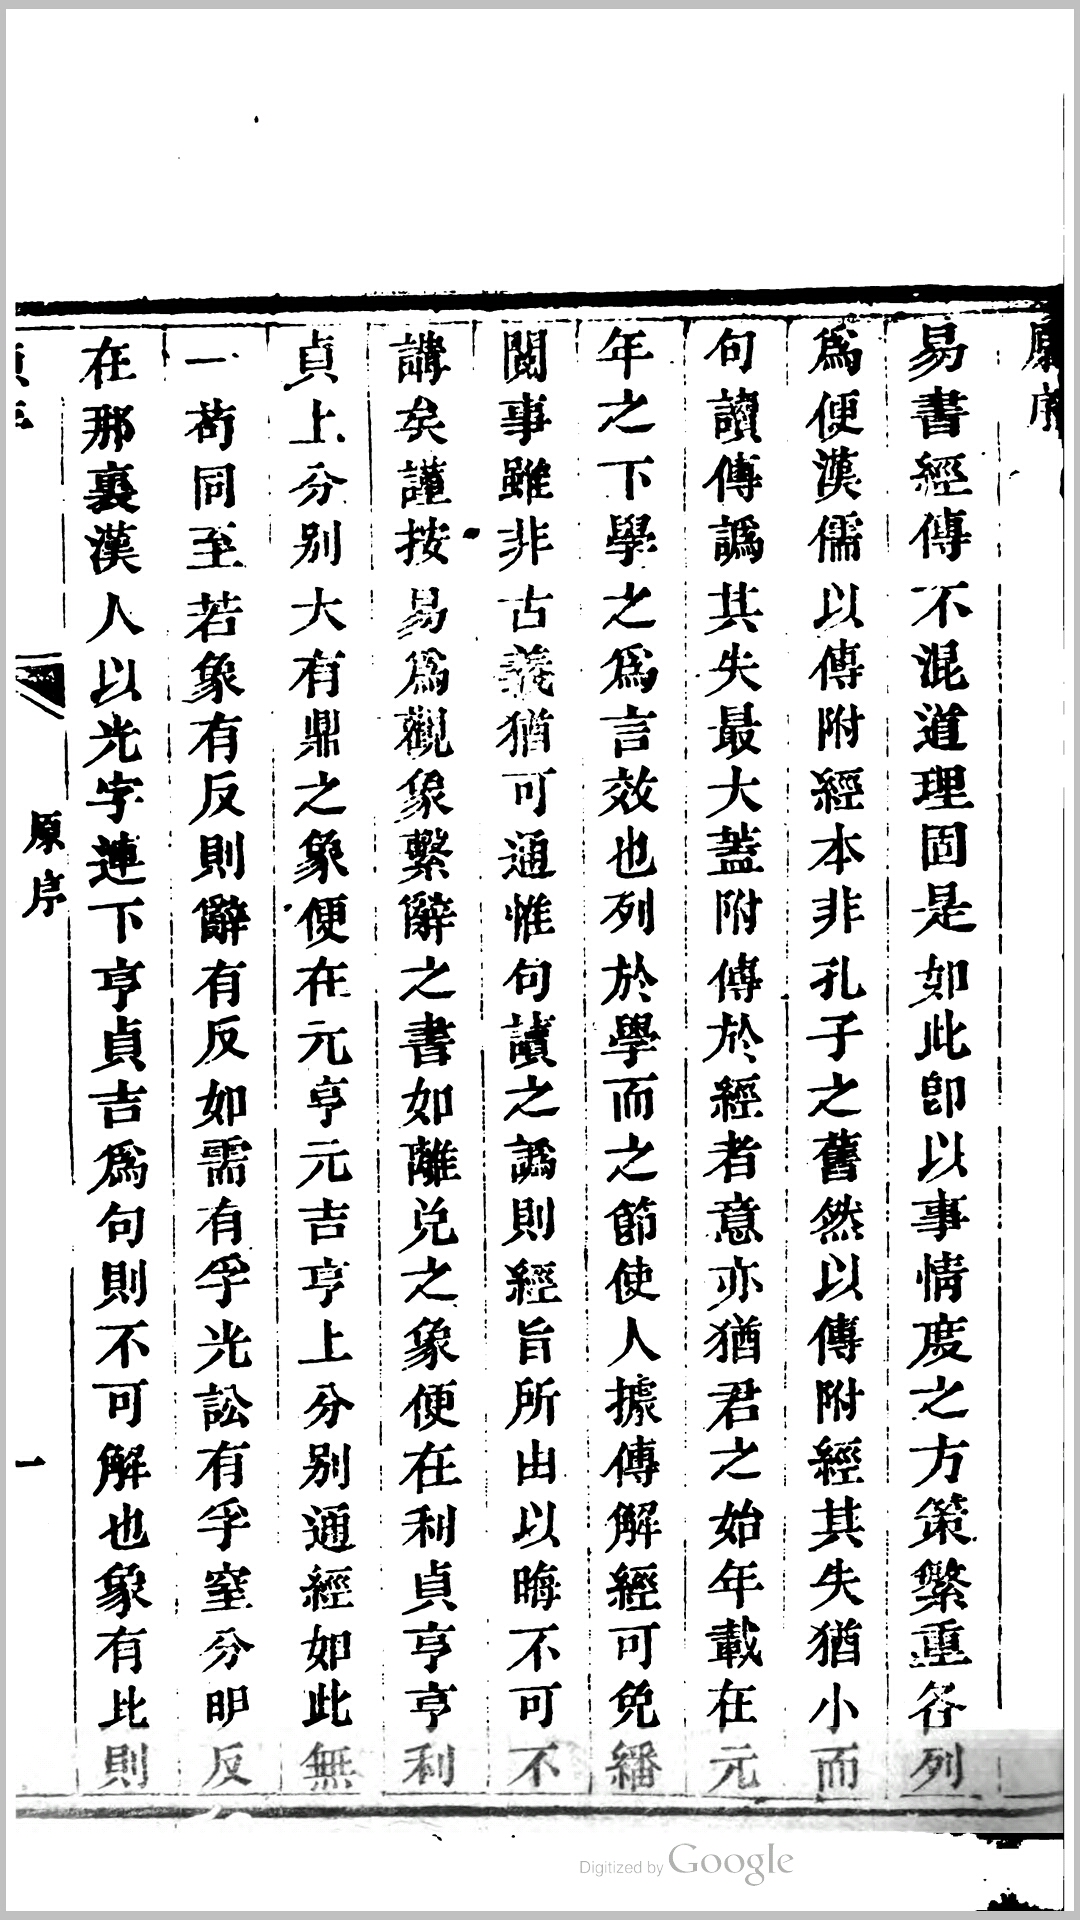 原序
易書經傳不混道理固是如此卽以事情度之方策繁重各列
爲便漢儒以傳附經本非孔子之舊然以傳附經其失猶小而
句讀傳譌其失最大蓋附傳於經者意亦猶君之始年載在元
年之下學之爲言效也列於學而之節使人據傳解經可免繙
閱事雖非古義猶可通惟句讀之譌則經旨所由以晦不可不
講矣謹按易爲觀象繫辭之書如離兌之象便在利貞亨亨利
貞上分别大有鼎之象便在元亨元吉亨上分别通經如此無
一茍同至若象有反則辭有反如需有孚光訟有孚窒分明反
在那裏漢人以光字連下亨貞吉爲句則不可解也象有比則
原序
一
Digitized by Google